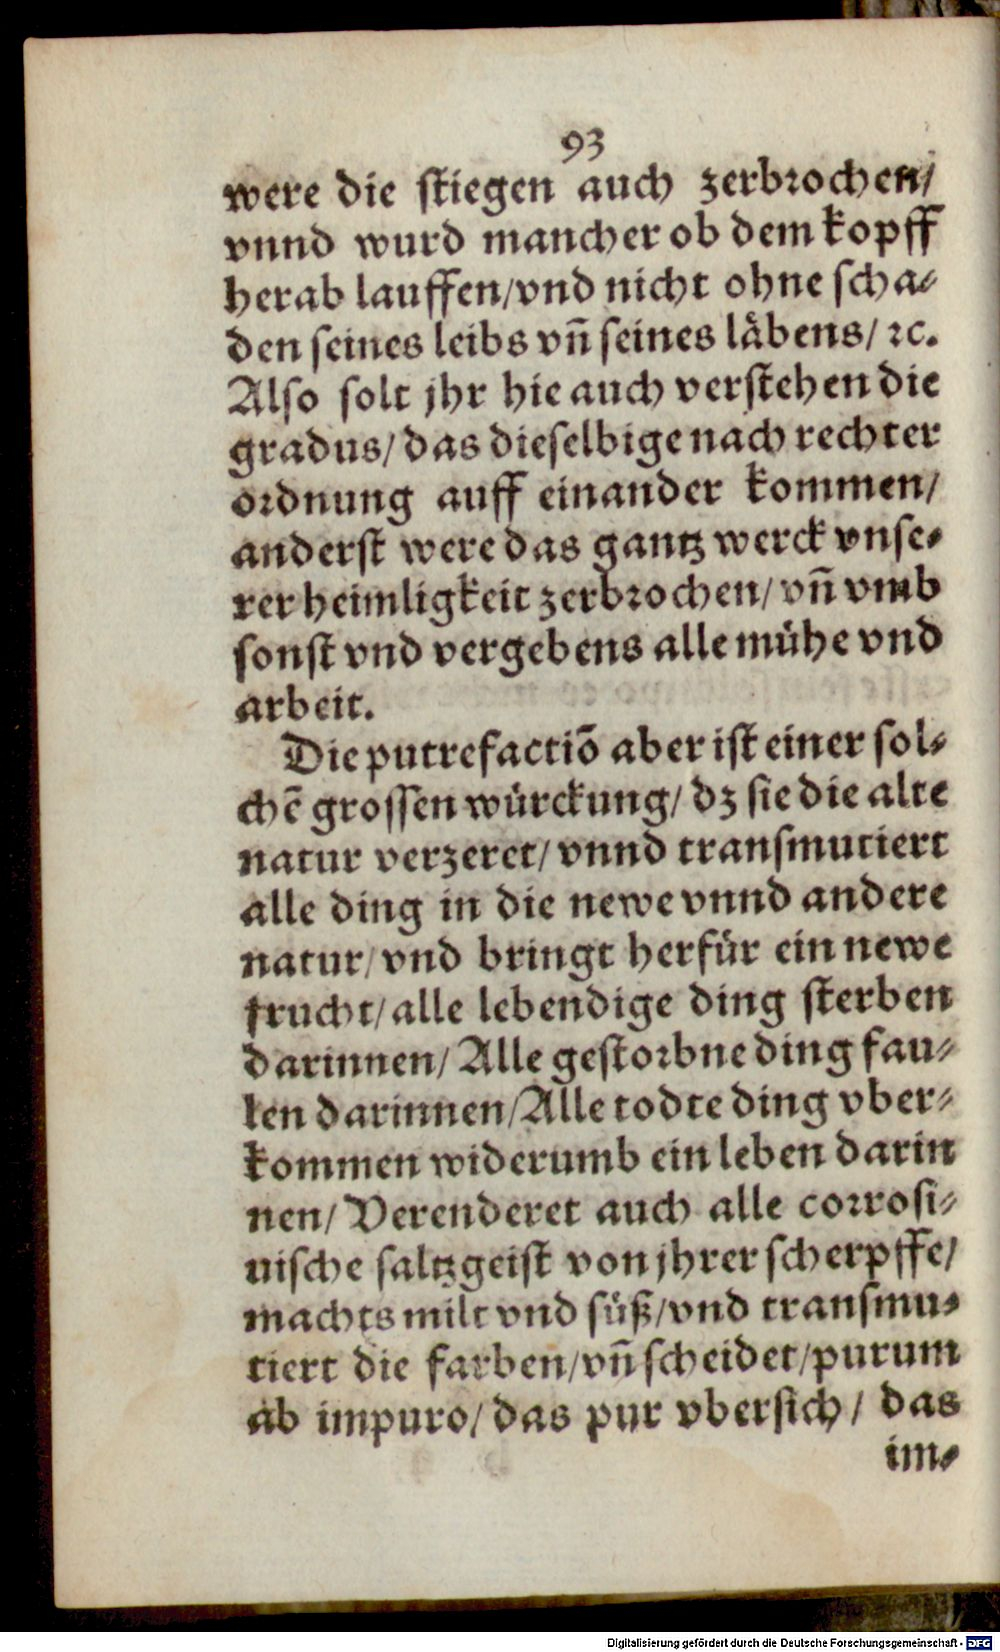 93
were die stiegen auch zerbrochen/
vnnd wurd mancher ob dem kopff
herab lauffen/vnd nicht ohne scha-
den seines leibs vn̄ seines läbens/ ꝛc.
Also solt jhr hie auch verstehen die
gradus/ das dieselbige nach rechter
ordnung auff einander kommen/
anderst were das gantz werck vnse-
rer heimligkeit zerbrochen/ vn̄ vmb
sonst vnd vergebens alle mühe vnd
arbeit.
Die putrefactiō aber ist einer sol-
chē grossen würckung/ dz sie die alte
natur verzeret/ vnnd transmutiert
alle ding in die newe vnnd andere
natur/ vnd bringt herfür ein newe
frucht/ alle lebendige ding sterben
darinnen/ Alle gestorbne ding fau-
len darinnen/Alle todte ding vber-
kommen widerumb ein leben darin
nen/ Verenderet auch alle corrosi-
uische saltzgeist von jhrer scherpffe/
machts milt vnd süß/vnd transmu-
tiert die farben/vn̄ scheidet/purum
ab impuro/ das pur vbersich/ das
im-
Digitalisierung gefördert durch die Deutsche Forschungsgemeinschaft - DFG